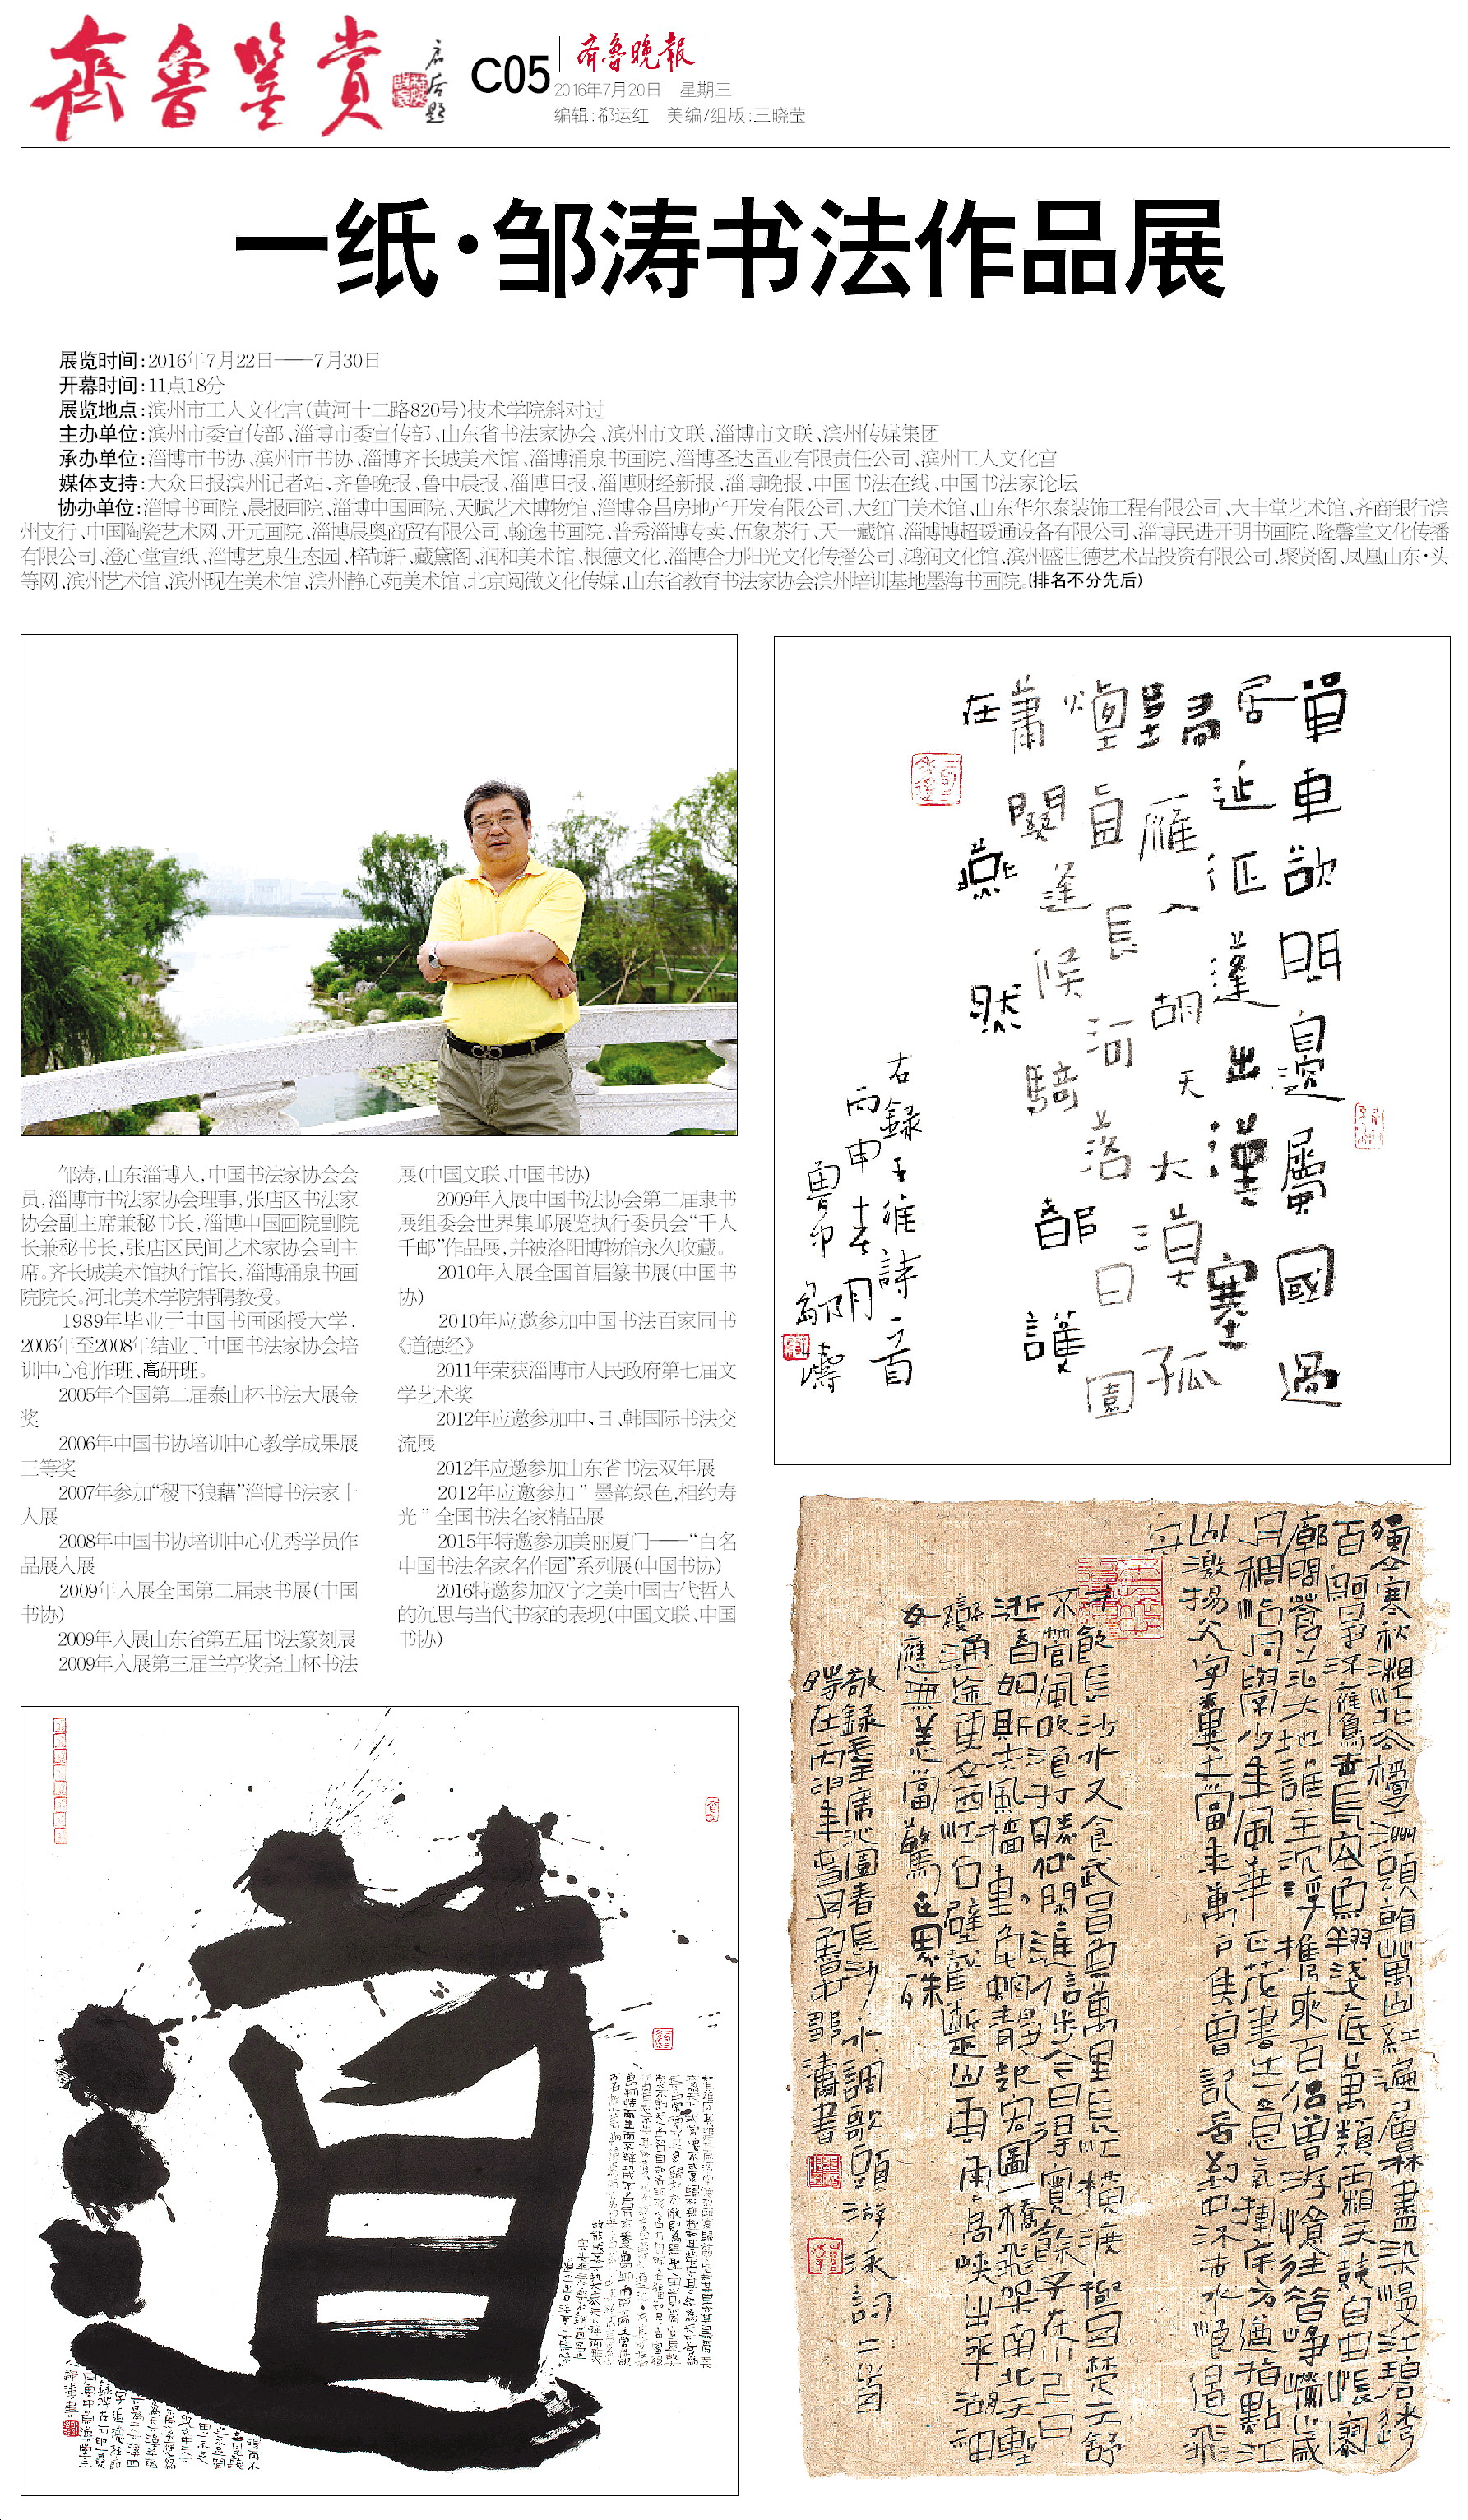 齊魯鑒赏
C05
齐鲁晚报
2016年7月20日 星期三
编辑：郗运红 美编/组版：王晓莹
一纸·邹涛书法作品展
展览时间：2016年7月22日——7月30日
开幕时间：11点18分
展览地点：滨州市工人文化宫（黄河十二路820号）技术学院斜对过
主办单位：滨州市委宣传部、淄博市委宣传部、山东省书法家协会、滨州市文联、淄博市文联、滨州传媒集团
承办单位：淄博市书协、滨州市书协、淄博齐长城美术馆、淄博涌泉书画院、淄博圣达置业有限责任公司、滨州工人文化宫
媒体支持：大众日报滨州记者站、齐鲁晚报、鲁中晨报、淄博日报、淄博财经新报、淄博晚报、中国书法在线、中国书法家论坛
协办单位：淄博书画院、晨报画院、淄博中国画院、天赋艺术博物馆、淄博金昌房地产开发有限公司、大红门美术馆、山东华尔泰装饰工程有限公司、大丰堂艺术馆、齐商银行滨
州支行、中国陶瓷艺术网、开元画院、淄博晨奥商贸有限公司、翰逸书画院、普秀淄博专卖、伍象茶行、天一藏馆、淄博博超暖通设备有限公司、淄博民进开明书画院、隆馨堂文化传播
有限公司、澄心堂宣纸、淄博艺泉生态园、梓颉轩、藏黛阁、润和美术馆、根德文化、淄博合力阳光文化传播公司、鸿润文化馆、滨州盛世德艺术品投资有限公司、聚贤阁、凤凰山东·头
等网、滨州艺术馆、滨州现在美术馆、滨州静心苑美术馆、北京阅微文化传媒、山东省教育书法家协会滨州培训基地墨海书画院。（排名不分先后）
邹涛，山东淄博人，中国书法家协会会
员，淄博市书法家协会理事，张店区书法家
协会副主席兼秘书长，淄博中国画院副院
长兼秘书长，张店区民间艺术家协会副主
席。齐长城美术馆执行馆长，淄博涌泉书画
院院长。河北美术学院特聘教授。
1989年毕业于中国书画函授大学，
2006年至2008年结业于中国书法家协会培
训中心创作班、高研班。
2005年全国第二届泰山杯书法大展金
奖
2006年中国书协培训中心教学成果展
三等奖
2007年参加“稷下狼藉”淄博书法家十
人展
2008年中国书协培训中心优秀学员作
品展入展
2009年入展全国第二届隶书展（中国
书协）
2009年入展山东省第五届书法篆刻展
2009年入展第三届兰亭奖尧山杯书法
展（中国文联、中国书协）
2009年入展中国书法协会第二届隶书
展组委会世界集邮展览执行委员会“千人
千邮”作品展，并被洛阳博物馆永久收藏。
2010年入展全国首届篆书展（中国书
协）
2010年应邀参加中国书法百家同书
《道德经》
2011年荣获淄博市人民政府第七届文
学艺术奖
2012年应邀参加中、日、韩国际书法交
流展
2012年应邀参加山东省书法双年展
2012年应邀参加＂墨韵绿色，相约寿
光＂全国书法名家精品展
2015年特邀参加美丽厦门——“百名
中国书法名家名作园”系列展（中国书协）
2016特邀参加汉字之美中国古代哲人
的沉思与当代书家的表现（中国文联、中国
书协）
單車欲問邊屬國過
居延征蓬出漢塞
歸雁入胡天大漠孤
煙直長河落日圓
蕭關逢候騎都護
在燕然
右録王維詩一首
丙申春月
魯中鄒濤
道
獨立寒秋湘江北去橘子洲頭看萬山紅遍層林盡染漫江碧透
百舸爭流鷹擊長空魚翔淺底萬類霜天競自由悵寥
廓問蒼茫大地誰主沉浮攜來百侶曾游憶往昔崢嶸歲
月稠恰同學少年風華正茂書生意氣揮斥方遒指點江
山激揚文字糞土當年萬戶侯曾記否到中流擊水浪遏飛
舟
才飲長沙水又食武昌魚萬里長江橫渡極目楚天舒
不管風吹浪打勝似閑庭信步今日得寬餘子在川上曰
逝者如斯夫風檣動龜蛇靜起宏圖一橋飛架南北天塹
變通途更立西江石壁截斷巫山雲雨高峽出平湖神
女應無恙當驚世界殊
敬録毛主席沁園春長沙水調歌頭游泳詞二首
時在丙申年春月魯中鄒濤書